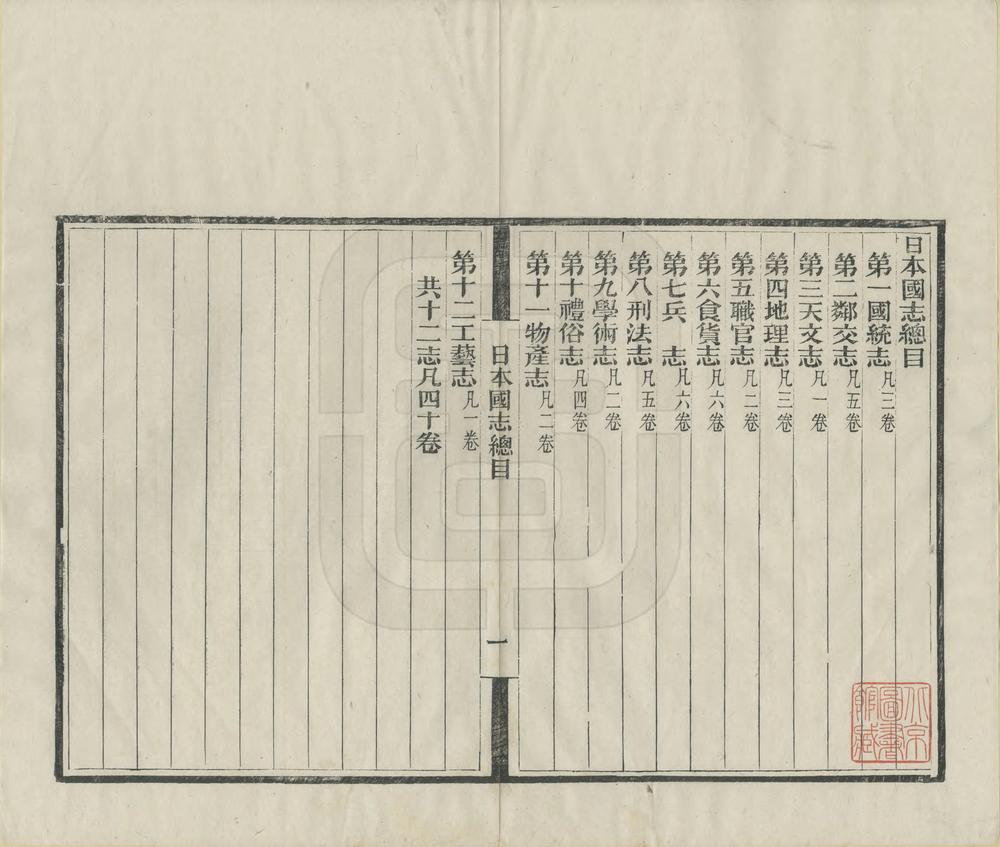 日本國志總目
第一國統志凡三卷
第二鄰交志凡五卷
第三天文志凡一卷
第四地理志凡三卷
第五職官志凡二卷
第六食貨志凡六卷
第七兵　志凡六卷
第八刑法志凡五卷
第九學術志凡二卷
第十禮俗志凡四卷
第十一物產志凡二卷
日本國志總目
一
第十二工藝志凡一卷
共十二志凡四十卷
北京
圖書
館藏